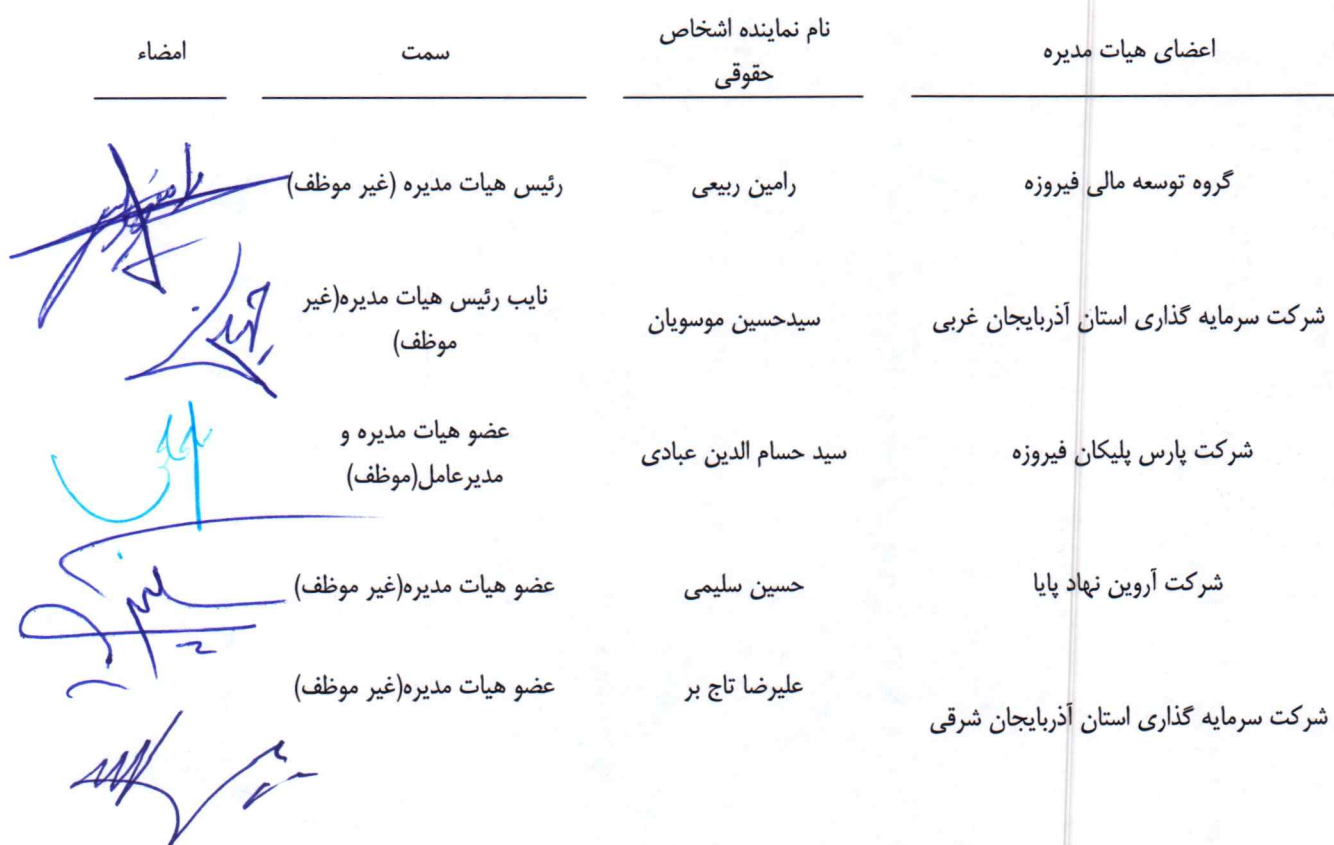 اعضای هیات مدیره
نام نماینده اشخاص
حقوقی
سمت
امضاء
گروه توسعه مالی فیروزه
رامین ربیعی
رئیس هیات مدیره (غیر موظف)
شرکت سرمایه گذاری استان آذربایجان غربی
سیدحسین موسویان
نایب رئیس هیات مدیره(غیر
موظف)
شرکت پارس پلیکان فیروزه
سید حسام الدین عبادی
عضو هیات مدیره و
مدیرعامل(موظف)
شرکت آروین نهاد پایا
حسین سلیمی
عضو هیات مدیره(غیر موظف)
شرکت سرمایه گذاری استان آذربایجان شرقی
علیرضا تاج بر
عضو هیات مدیره(غیر موظف)